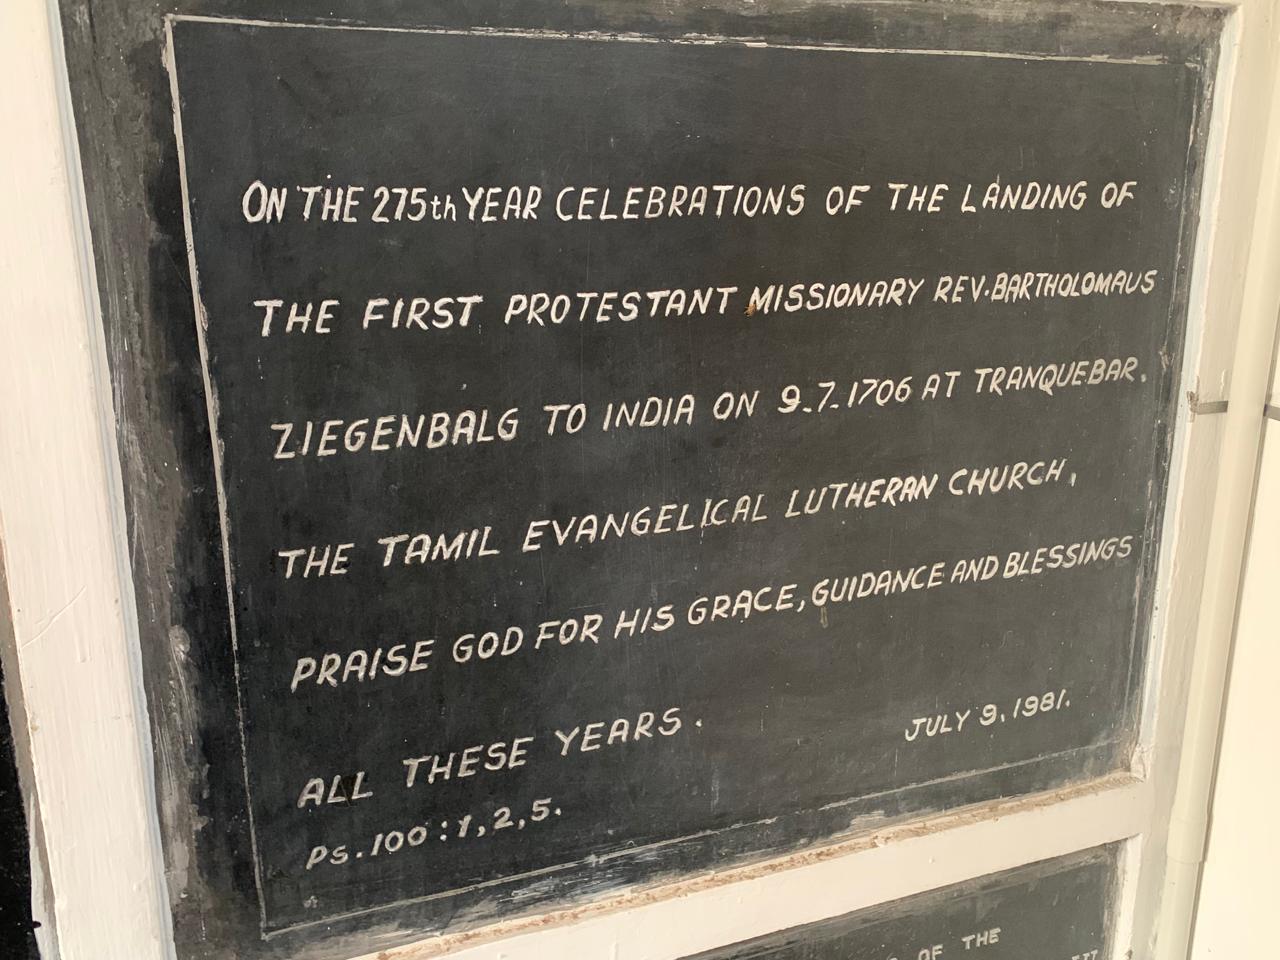 ON THE 275th YEAR CELEBRATIONS OF THE LANDING OF
THE FIRST PROTESTANT MISSIONARY REV. BARTHOLOMAUS
ZIEGENBALG TO INDIA ON 9.7.1706 AT TRANQUEBAR.
THE TAMIL EVANGELICAL LUTHERAN CHURCH,
PRAISE GOD FOR HIS GRACE, GUIDANCE AND BLESSINGS
ALL THESE YEARS.
JULY 9, 1981.
Ps. 100 : 1, 2, 5.
OF THE